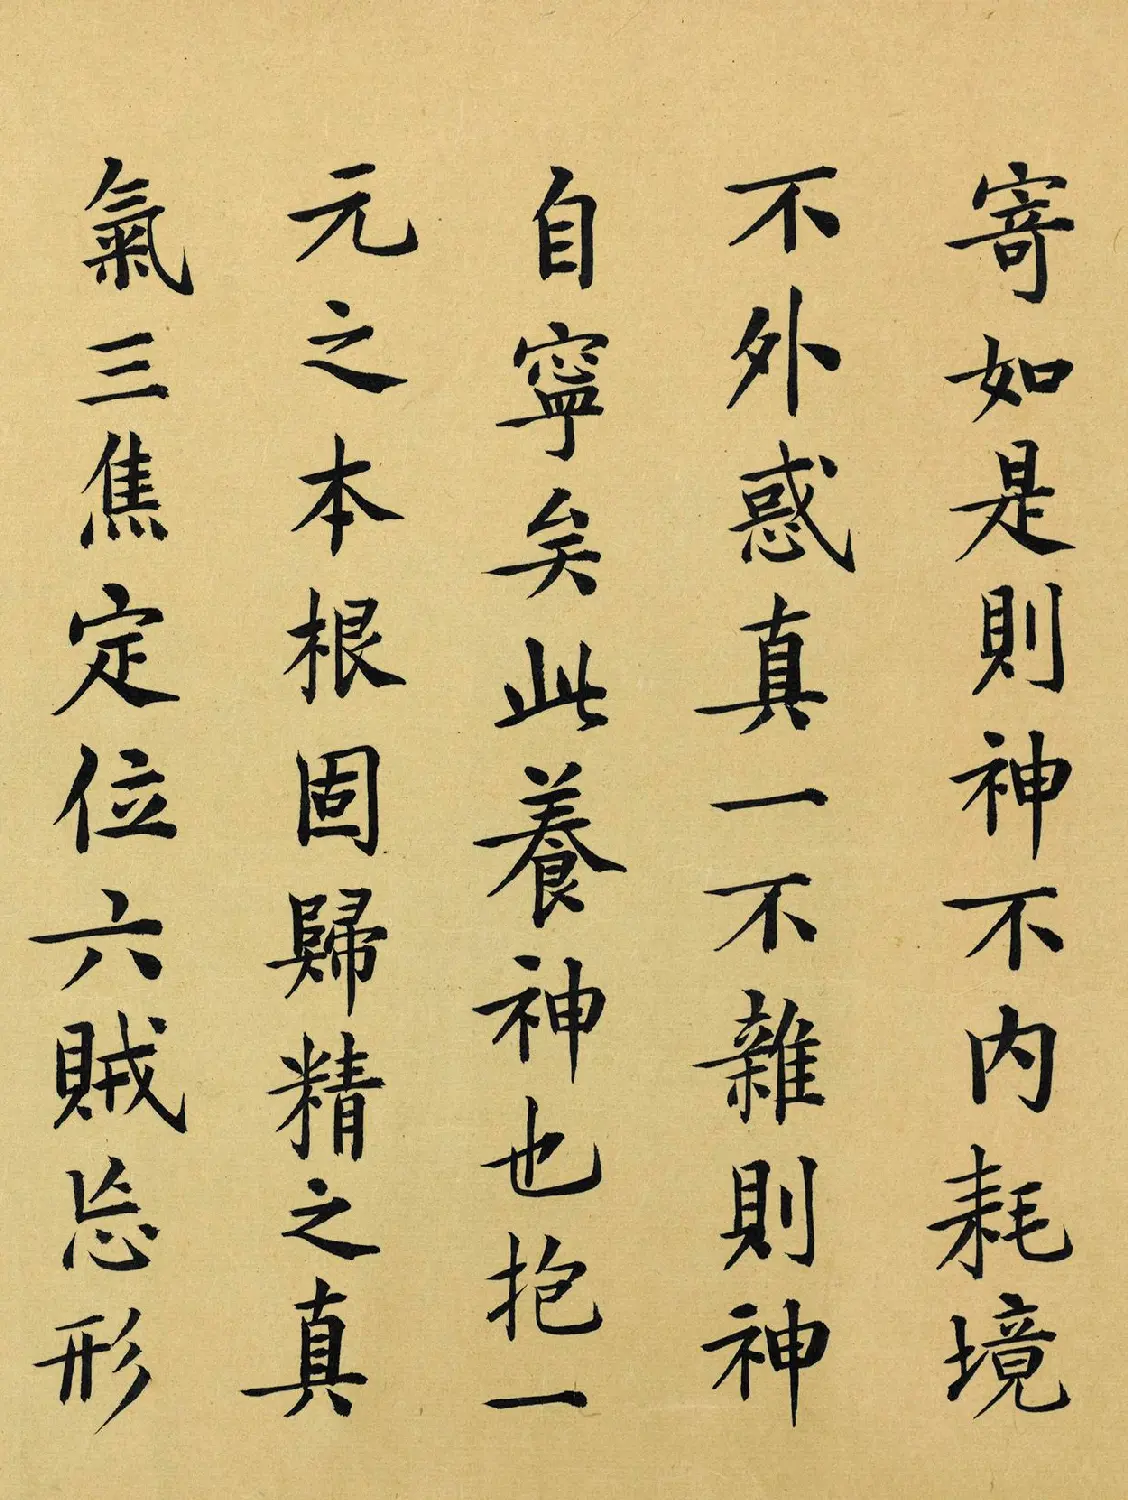 寄如是則神不内耗境
不外惑真一不雜則神
自寧矣此養神也抱一
元之本根固歸精之真
氣三焦定位六賊忘形